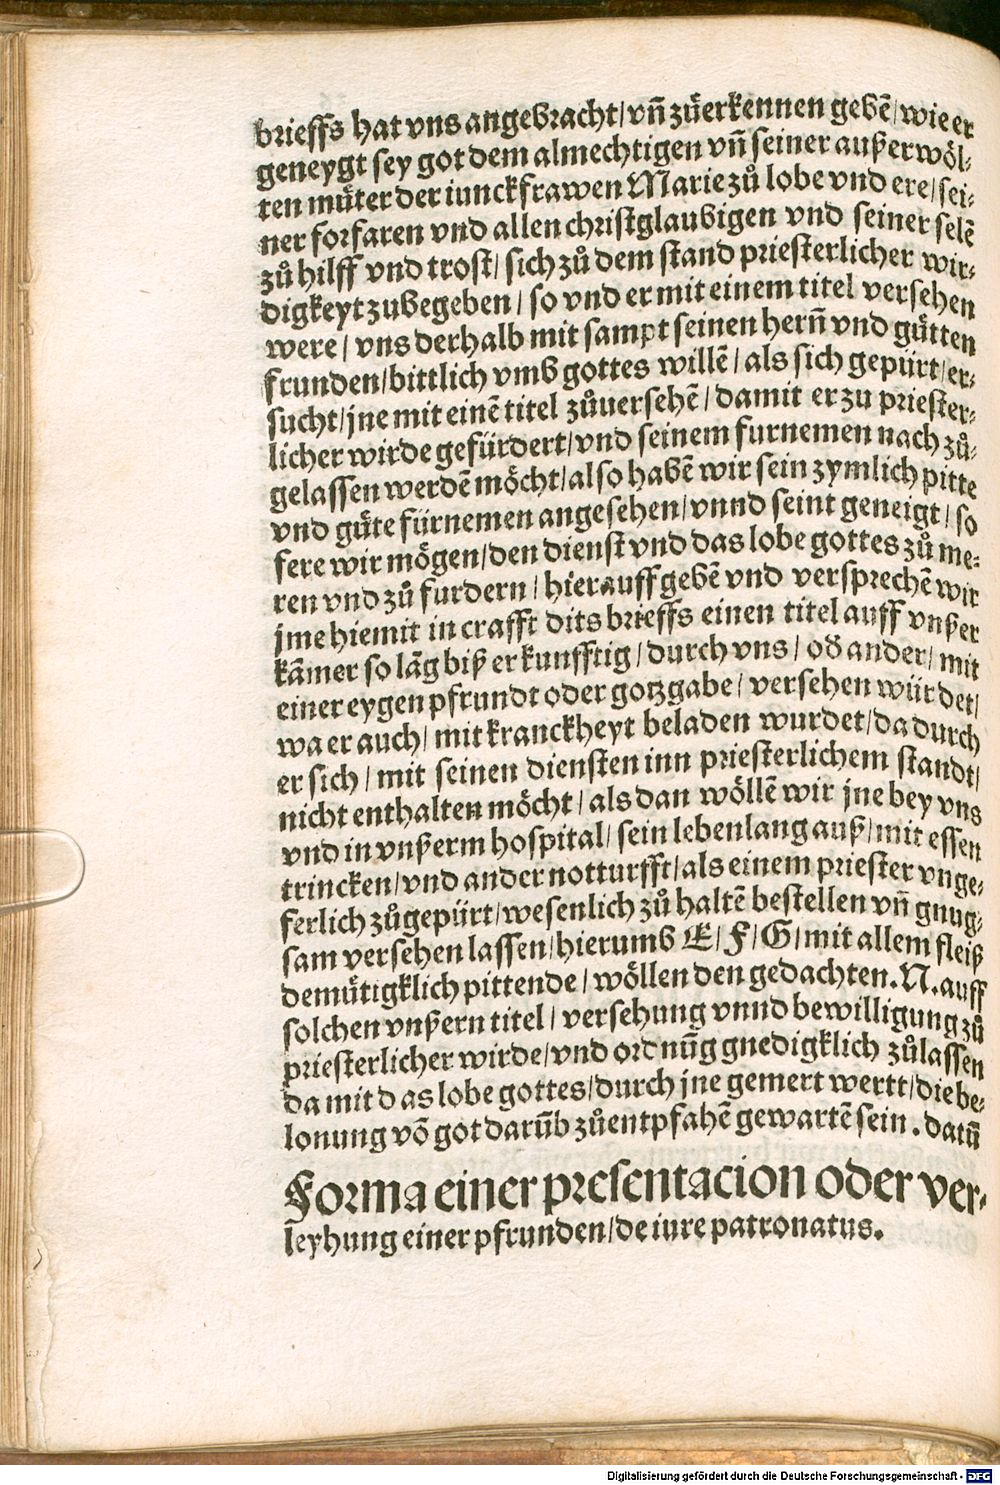 brieffs hat vns angebracht/ vñ zůerkennen gebē/ wie er
geneygt sey got dem almechtigen vñ seiner außerwöl⸗
ten můter der iunckfrawen Marie zů lobe vnd ere/ sei⸗
ner forfaren vnd allen christglaubigen vnd seiner selē
zů hilff vnd trost/ sich zů dem stand priesterlicher wir⸗
digkeyt zubegeben/ so vnd er mit einem titel versehen
were/ vns derhalb mit sampt seinen herñ vnd gůtten
frunden/ bittlich vmb gottes willē/ als sich gepürt/ er⸗
sucht/ jne mit einē titel zůuersehē/ damit er zu priester⸗
licher wirde gefürdert/ vnd seinem furnemen nach zů⸗
gelassen werdē möcht/ also habē wir sein zymlich pitte
vnd gůte fürnemen angesehen/ vnnd seint geneigt/ so
fere wir mögen/ den dienst vnd das lobe gottes zů me⸗
ren vnd zů furdern/ hierauff gebē vnd versprechē wir
jme hiemit in crafft dits brieffs einen titel auff vnßer
kām̄er so lāg biß er kunfftig/ durch vns/ oď ander/ mit
einer eygen pfrundt oder gotzgabe/ versehen würdet/
wa er auch/ mit kranckheyt beladen wurdet/ da durch
er sich/ mit seinen diensten inn priesterlichem standt/
nicht enthalten möcht/ als dan wöllē wir jne bey vns
vnd in vnßerm hospital/ sein lebenlang auß/ mit essen
trincken/ vnd ander notturfft/ als einem priester vnge⸗
ferlich zůgepürt/ wesenlich zů haltē bestellen vñ gnug⸗
sam versehen lassen/ hierumb E/ F/ G/ mit allem fleiß
demütigklich pittende/ wöllen den gedachten. N. auff
solchen vnßern titel/ versehung vnnd bewilligung zů
priesterlicher wirde/ vnd ordnūg gnedigklich zůlassen
da mit das lobe gottes/ durch jne gemert wertt/ die be⸗
lonung vō got darūb zůentpfahē gewartē sein. datū
Forma einer presentacion oder ver⸗
leyhung einer pfrunden/ de iure patronatus.
Digitalisierung gefördert durch die Deutsche Forschungsgemeinschaft - DFG